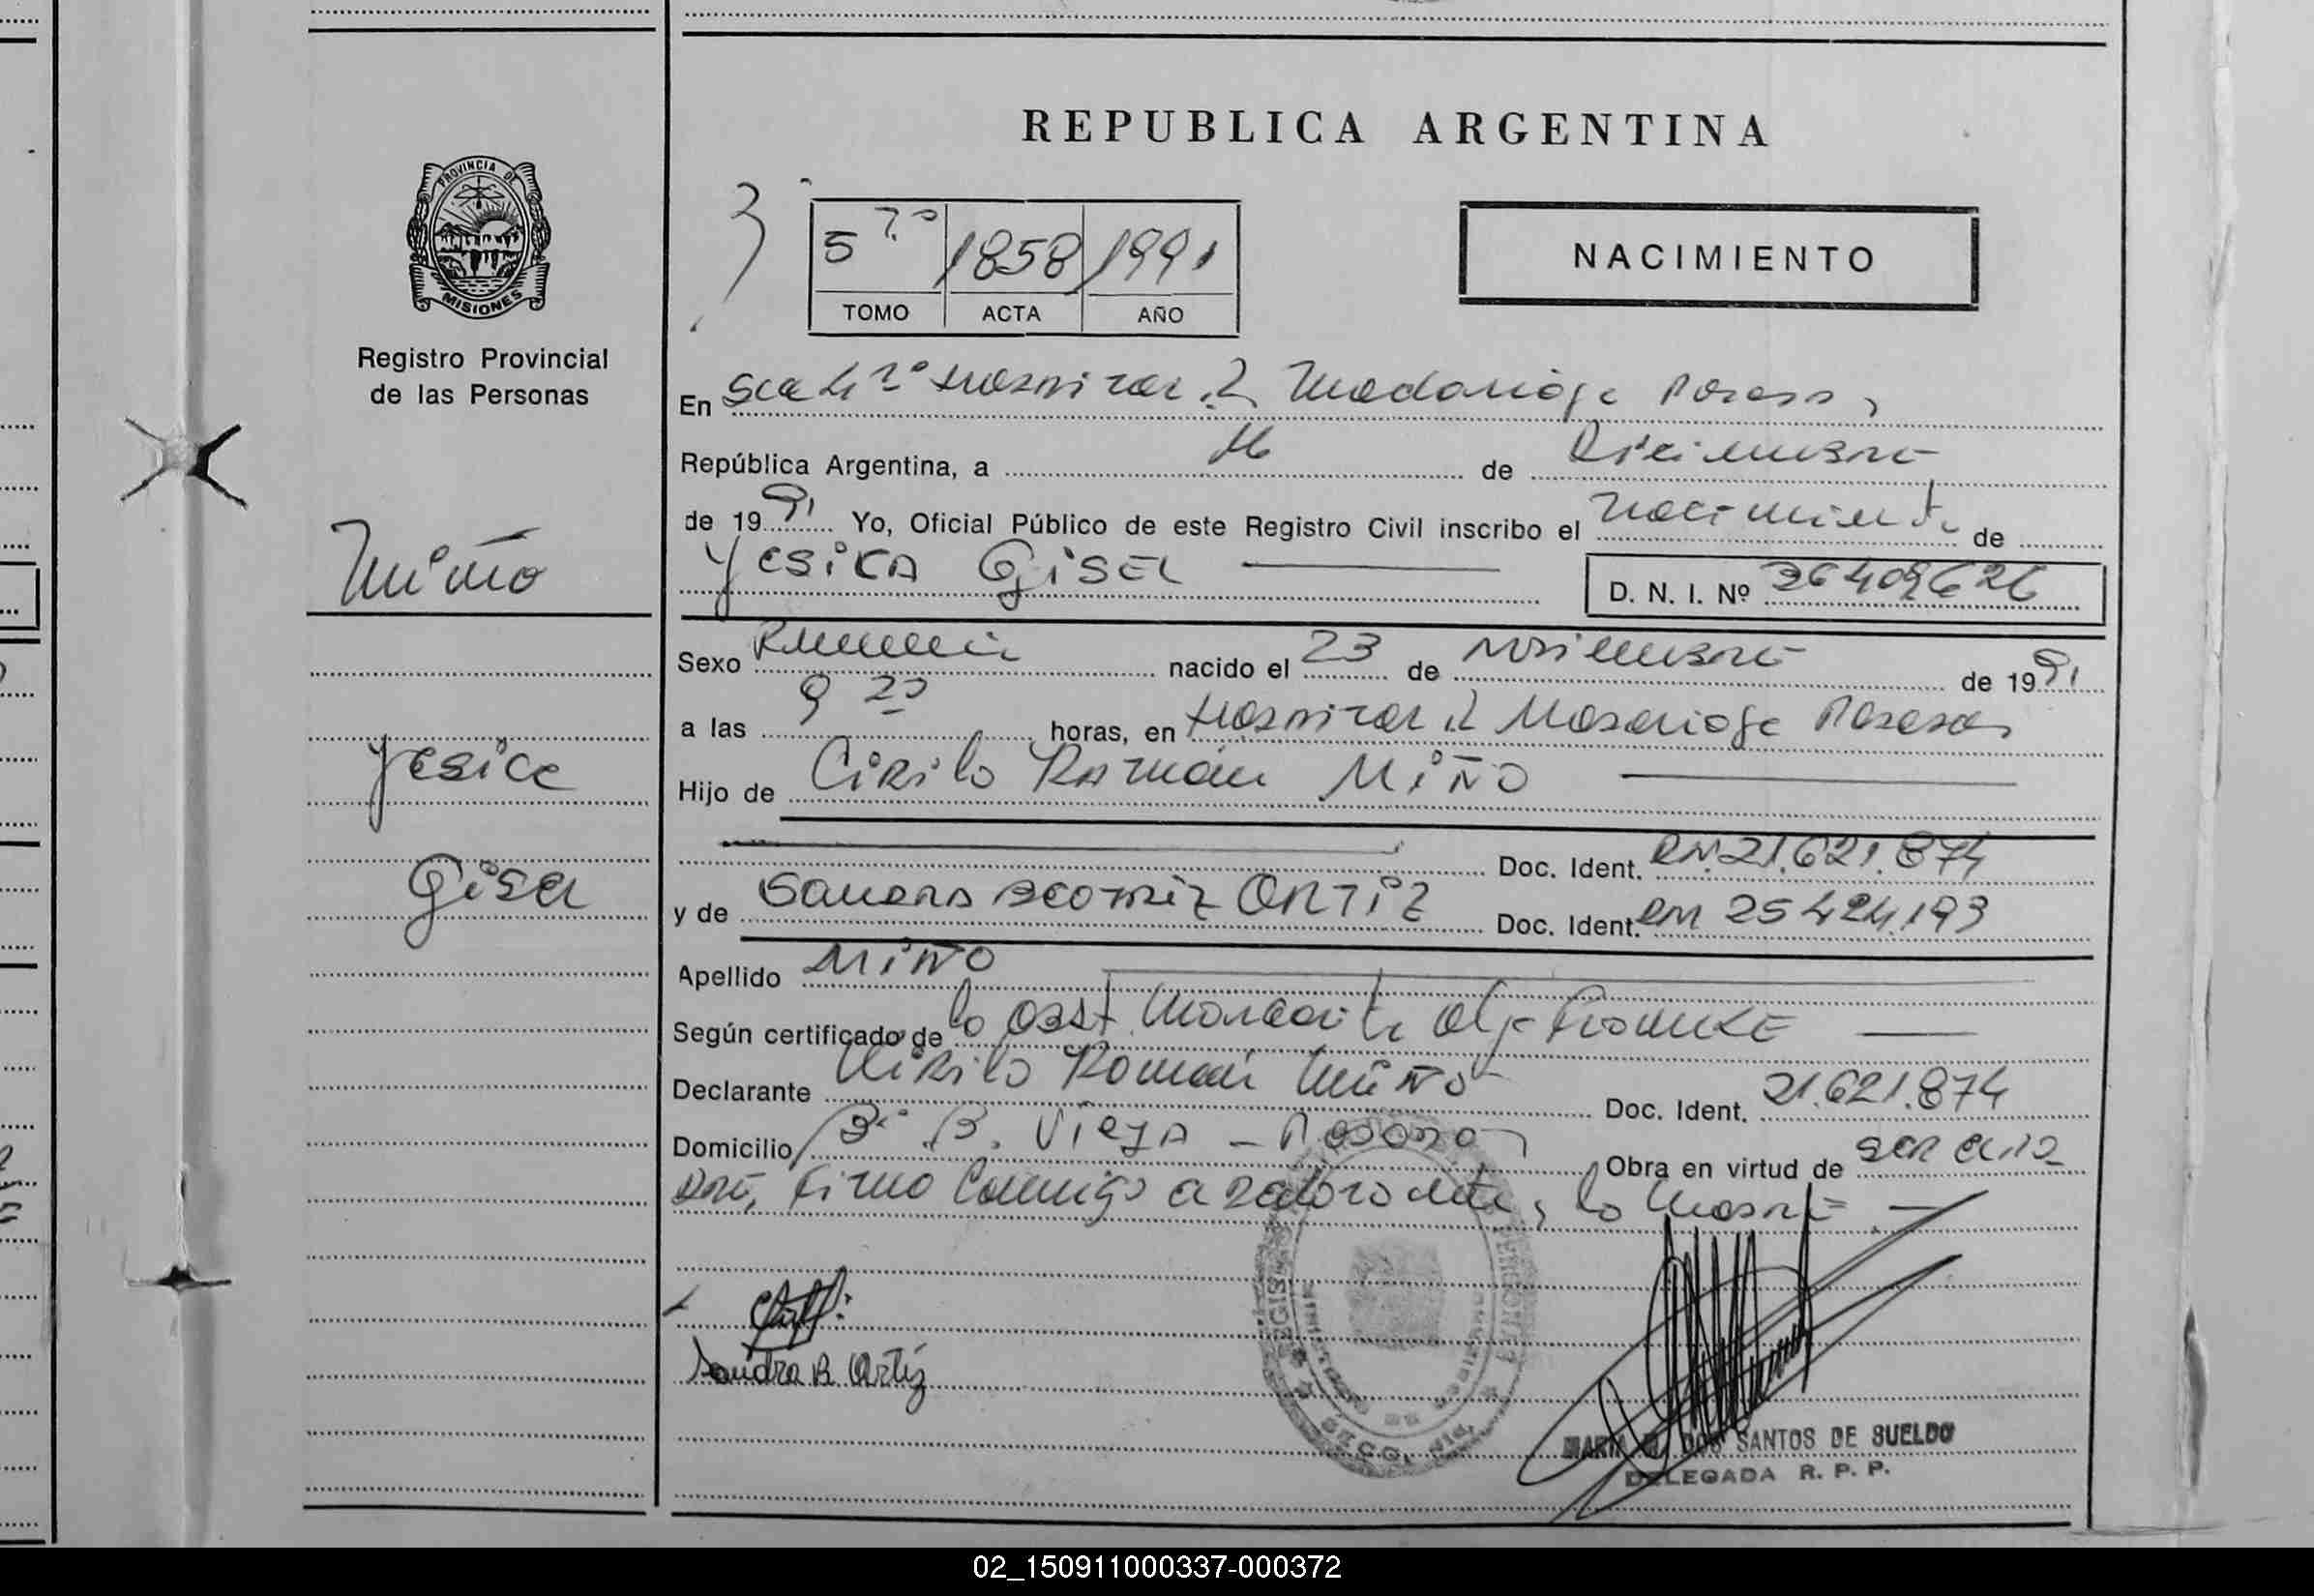 REPUBLICA ARGENTINA
PROVINCIA DE
MISIONES
Registro Provincial
de las Personas
5 1858 1991
TOMO ACTA AÑO
NACIMIENTO
En Hospital R Madariaga Posadas
República Argentina, a 16 de Diciembre
de 1991 Yo, Oficial Público de este Registro Civil inscribo el nacimiento de
Yesica Gisel D. N. I. Nº 36409626
Miño
Sexo Femenino nacido el 23 de noviembre de 1991
a las 9 20 horas, en Hospital R Madariaga Posadas
Yesica
Hijo de Cirilo Ramón Miño
Doc. Ident. DNI 21.621.874
Gisel
y de Sandra Beatriz ORTIZ Doc. Ident. DNI 25424.193
Apellido MIÑO
Según certificado de la Obst. Margarita
Declarante Cirilo Ramón Miño Doc. Ident. 21.621.874
Domicilio Bº B. Vieja - Posadas Obra en virtud de ser el pa
dre, firma conmigo la madre.-
Sandra B. Ortiz
DOS SANTOS DE SUELDO
DELEGADA R. P. P.
02_150911000337-000372